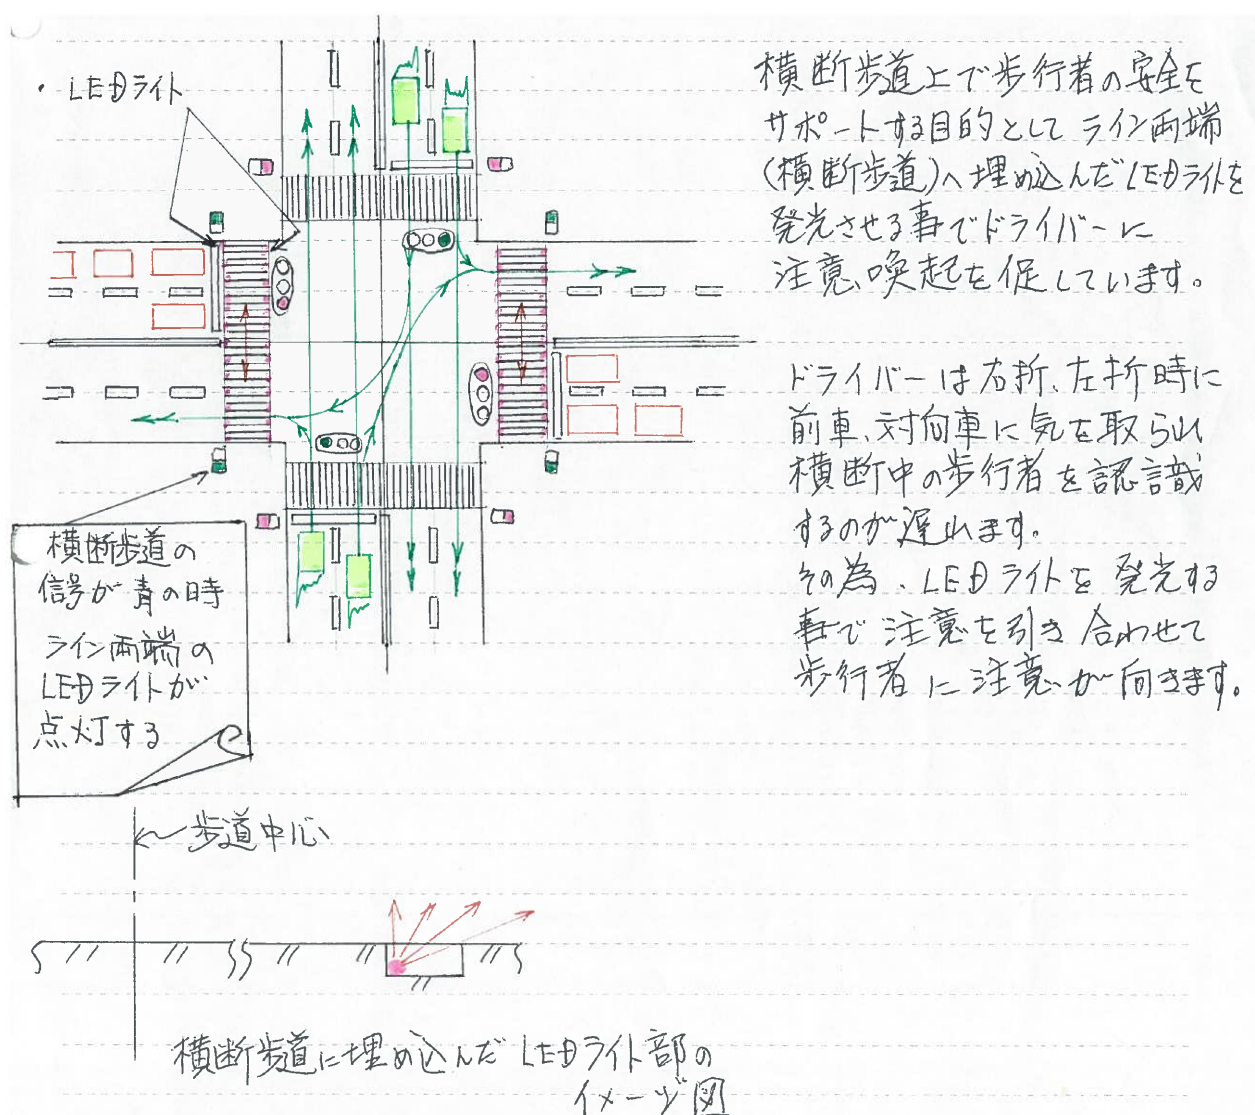 ・LEDライト
横断歩道上で歩行者の安全を
サポートする目的として ライン両端
(横断歩道)へ埋め込んだLEDライトを
発光させる事でドライバーに
注意、喚起を促しています。
ドライバーは右折、左折時に
前車、対向車に気を取られ
横断中の歩行者を認識
するのが遅れます。
その為、LEDライトを発光する
事で注意を引き合わせて
歩行者に注意が向きます。
横断歩道の
信号が青の時
ライン両端の
LEDライトが
点灯する
歩道中心
横断歩道に埋め込んだLEDライト部の
イメージ図